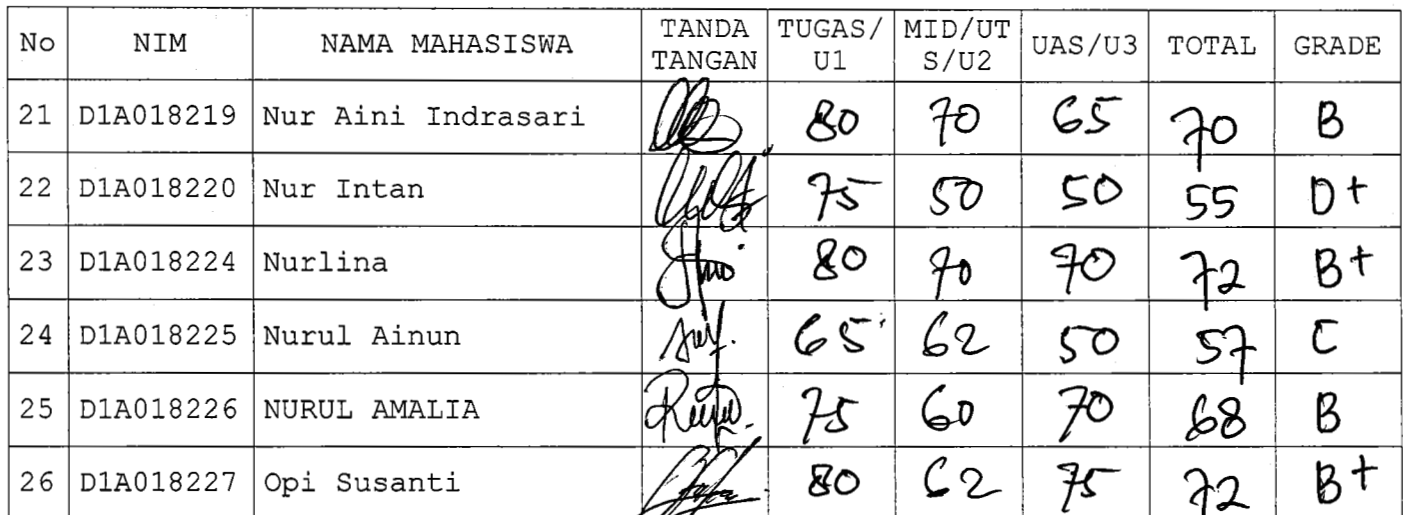 No NIM NAMA MAHASISWA TANDA TANGAN TUGAS/U1 MID/UTS/U2 UAS/U3 TOTAL GRADE
21 D1A018219 Nur Aini Indrasari 80 70 65 70 B
22 D1A018220 Nur Intan 75 50 50 55 D+
23 D1A018224 Nurlina 80 70 70 72 B+
24 D1A018225 Nurul Ainun 65 62 50 57 C
25 D1A018226 NURUL AMALIA 75 60 70 68 B
26 D1A018227 Opi Susanti 80 62 75 72 B+